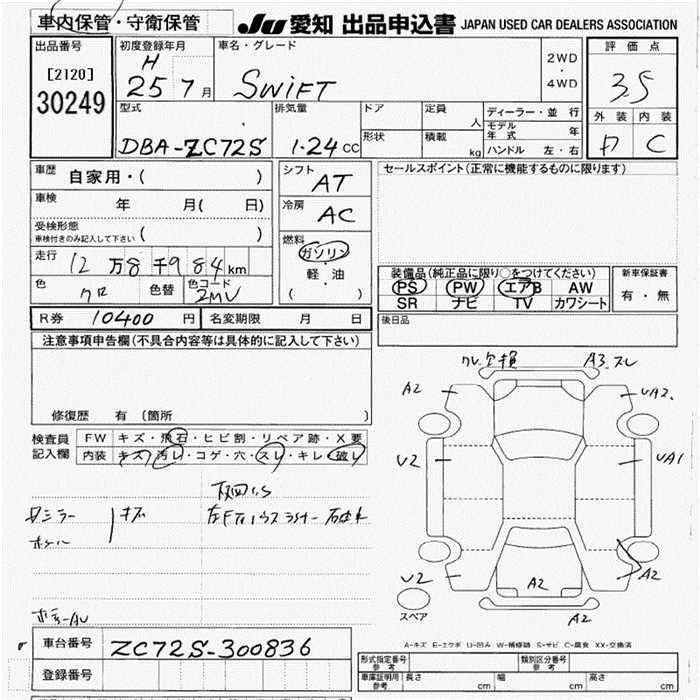 車内保管・守衛保管
JU 愛知 出品申込書 JAPAN USED CAR DEALERS ASSOCIATION
出品番号
[2120]
30249
初度登録年月
H 25 7 月
車名・グレード
SWIFT
2WD
・
4WD
評価点
3.5
外装 内装
C
型式
DBA-ZC72S
排気量
1.24 CC
ドア
形状
定員
人
積載
kg
ディーラー・並行
モデル年式 年
ハンドル 左・右
車歴 自家用・( )
車検 年 月( 日)
受検形態
車検付きのみ記入して下さい ( )
走行 12 万 8 千 984 km
色 クロ 色替 色コード ZMV
シフト
AT
冷房
AC
燃料
ガソリン
・
軽・油
( )
セールスポイント(正常に機能するものに限ります)
装備品(純正品に限り○をつけてください)
PS PW エアB AW
SR ナビ TV カワシート
新車保証書
有・無
後日品
R券 10400 円 名変期限 月 日
注意事項申告欄(不具合内容等は具体的に記入して下さい)
修復歴 有 (箇所 )
検査員記入欄
FW キズ・飛石・ヒビ割・リペア跡・X要
内装 キズ・汚レ・コゲ・穴・スレ・キレ・破レ
ミラー キズ
A3 スレ
A2
UA2
U2
UA1
U2
A2
A2
A2
スペア
A-キズ E-エクボ U-凹み W-補修跡 S-サビ C-腐食 XX-交換済
車台番号 ZC72S-300836
登録番号
形式指定番号 参考
類別区分番号 参考
車庫証明用 参考 長さ cm 幅 cm 高さ cm